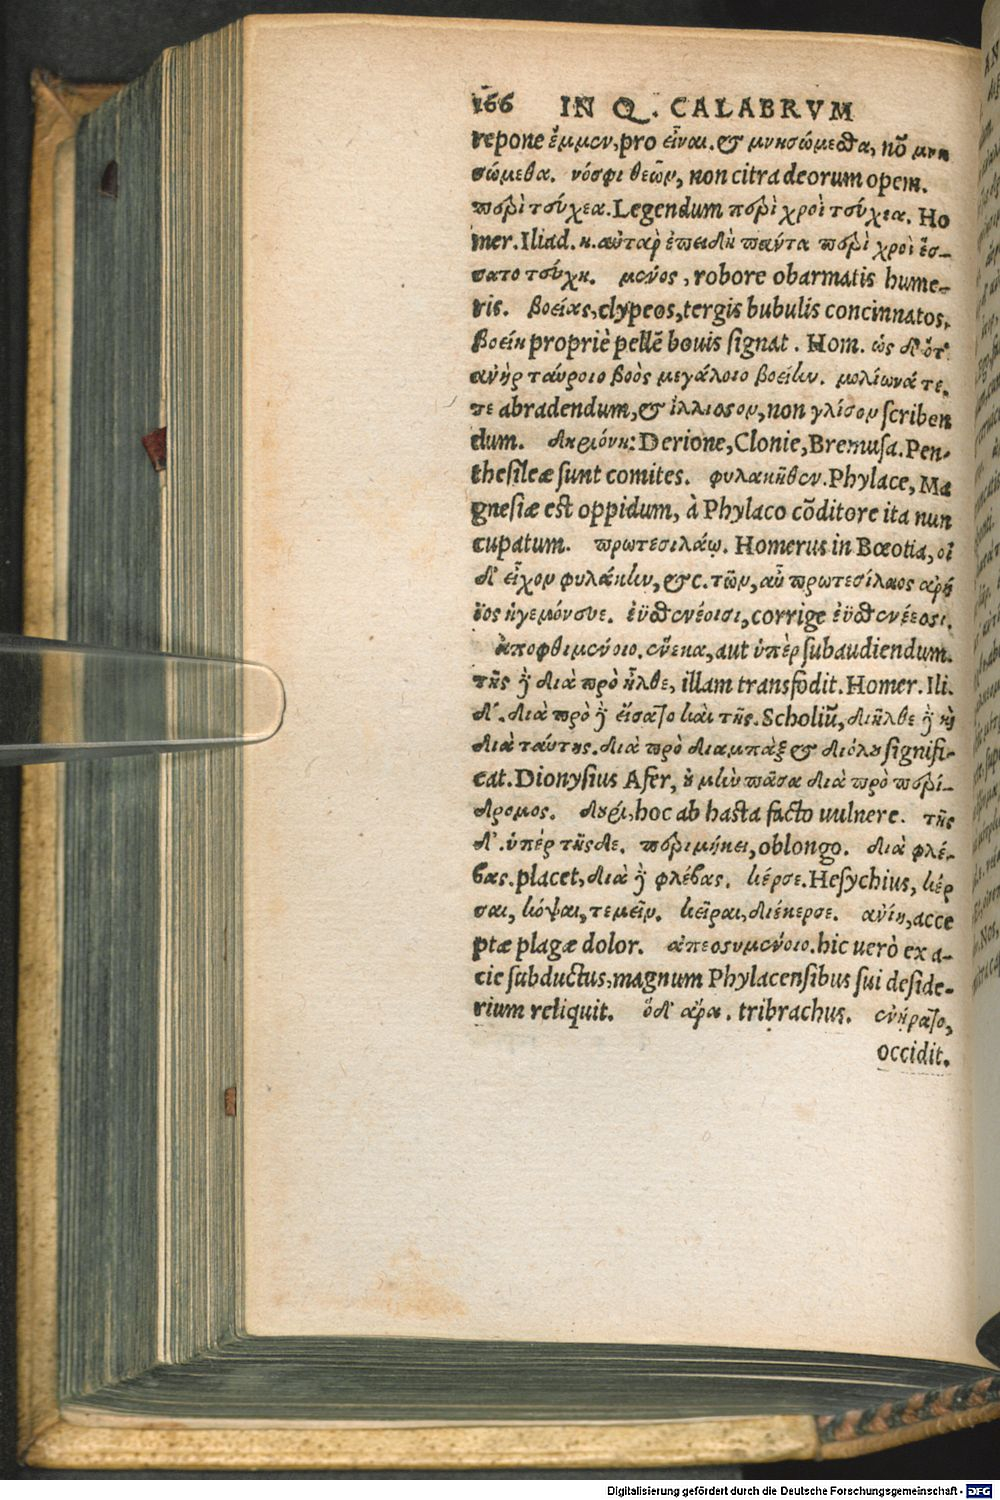 166 IN Q. CALABRVM
repone ἔμμεν, pro εἶναι. & μνησώμεσθα, nõ μνη
σώμεθα. νόσφι θεῶν, non citra deorum opem.
περὶ τεύχεα. Legendum περὶ χροῒ τεύχεα. Ho
mer. Iliad. κ. αὐτὰρ ἐπειδὴ πάντα περὶ χροῒ ἕσ-
σατο τεύχη. μένος, robore obarmatis hume-
ris. βοείας, clypeos, tergis bubulis concinnatos,
βοείη propriè pellẽ bouis signat. Hom. ὡς δ' ὅτ'
ἀνὴρ ταύροιο βοὸς μεγάλοιο βοείην. μολίωνά τε,
τε abradendum, & ἰλλιοσον, non γλίσον scriben
dum. δηριόνη: Derione, Clonie, Bremusa. Pen-
thesileæ sunt comites. φυλακῆθεν. Phylace, Ma
gnesiæ est oppidum, à Phylaco cõditore ita nun
cupatum. πρωτεσιλάῳ. Homerus in Bœotia, οἱ
δ' εἶχον φυλάκην, &c. τῶν, αὖ πρωτεσίλαος ἀρή
ϊος ἡγεμόνευε. ἐϋσθενέοισι, corrige ἐϋσθενέεοσι.
ἀποφθιμένοιο. οὕνεκα, aut ὑπὲρ subaudiendum.
τῆς ỹ διὰ πρὸ ἦλθε, illam transfodit. Homer. Ili.
δ'. διὰ πρὸ ỹ εἴσατο καὶ τῆς. Scholiũ, διῆλθε ỹ κỳ
διὰ ταύτης. διὰ πρὸ διαμπὰξ & διόλου signifi-
cat. Dionysius Afer, οὐ μὴν πᾶσα διὰ πρὸ περί-
δρομος. δουρί, hoc ab hasta facto uulnere. τῆς
δ'. ὑπέρ τῆς δε. περιμήκει, oblongo. διὰ φλέ-
βας. placet, διὰ ỹ φλέβας. κέρσε. Hesychius, κέρ
σαι, κόψαι, τεμεῖν. κεῖραι, διέκερσε. ἀνίη, acce
ptæ plagæ dolor. ἀπεσσυμένοιο. hic uerò ex a-
cie subductus, magnum Phylacensibus sui deside-
rium reliquit. ὅδ' ἄρα. tribrachus. ἐνήρατο,
occidit.
Digitalisierung gefördert durch die Deutsche Forschungsgemeinschaft - DFG